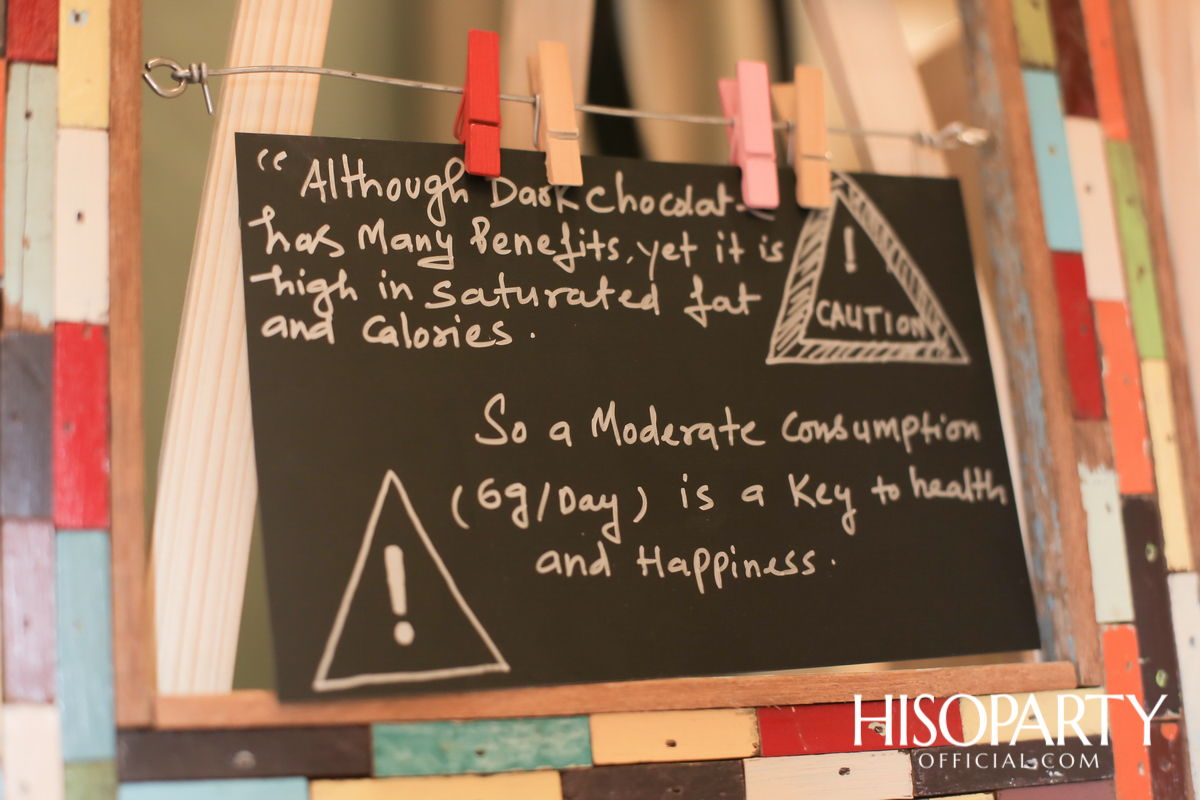 “Although Dark Chocolat
has Many Benefits, yet it is
high in saturated fat
and Calories.
!
CAUTION
So a Moderate Consumption
(6g/Day) is a Key to health
and Happiness.
!
HISOPARTY
OFFICIAL.COM